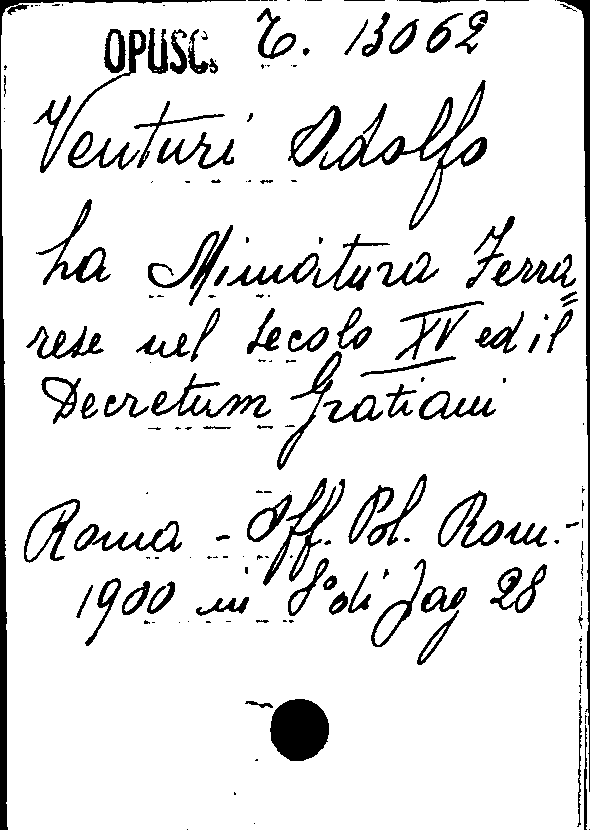 OPUSC. T. 13062
Venturi Adolfo
La Miniatura Ferra=
rese nel secolo XV ed il
Decretum Gratiani
Roma - Off. Pol. Rom. -
1900 in 8° di pag 28